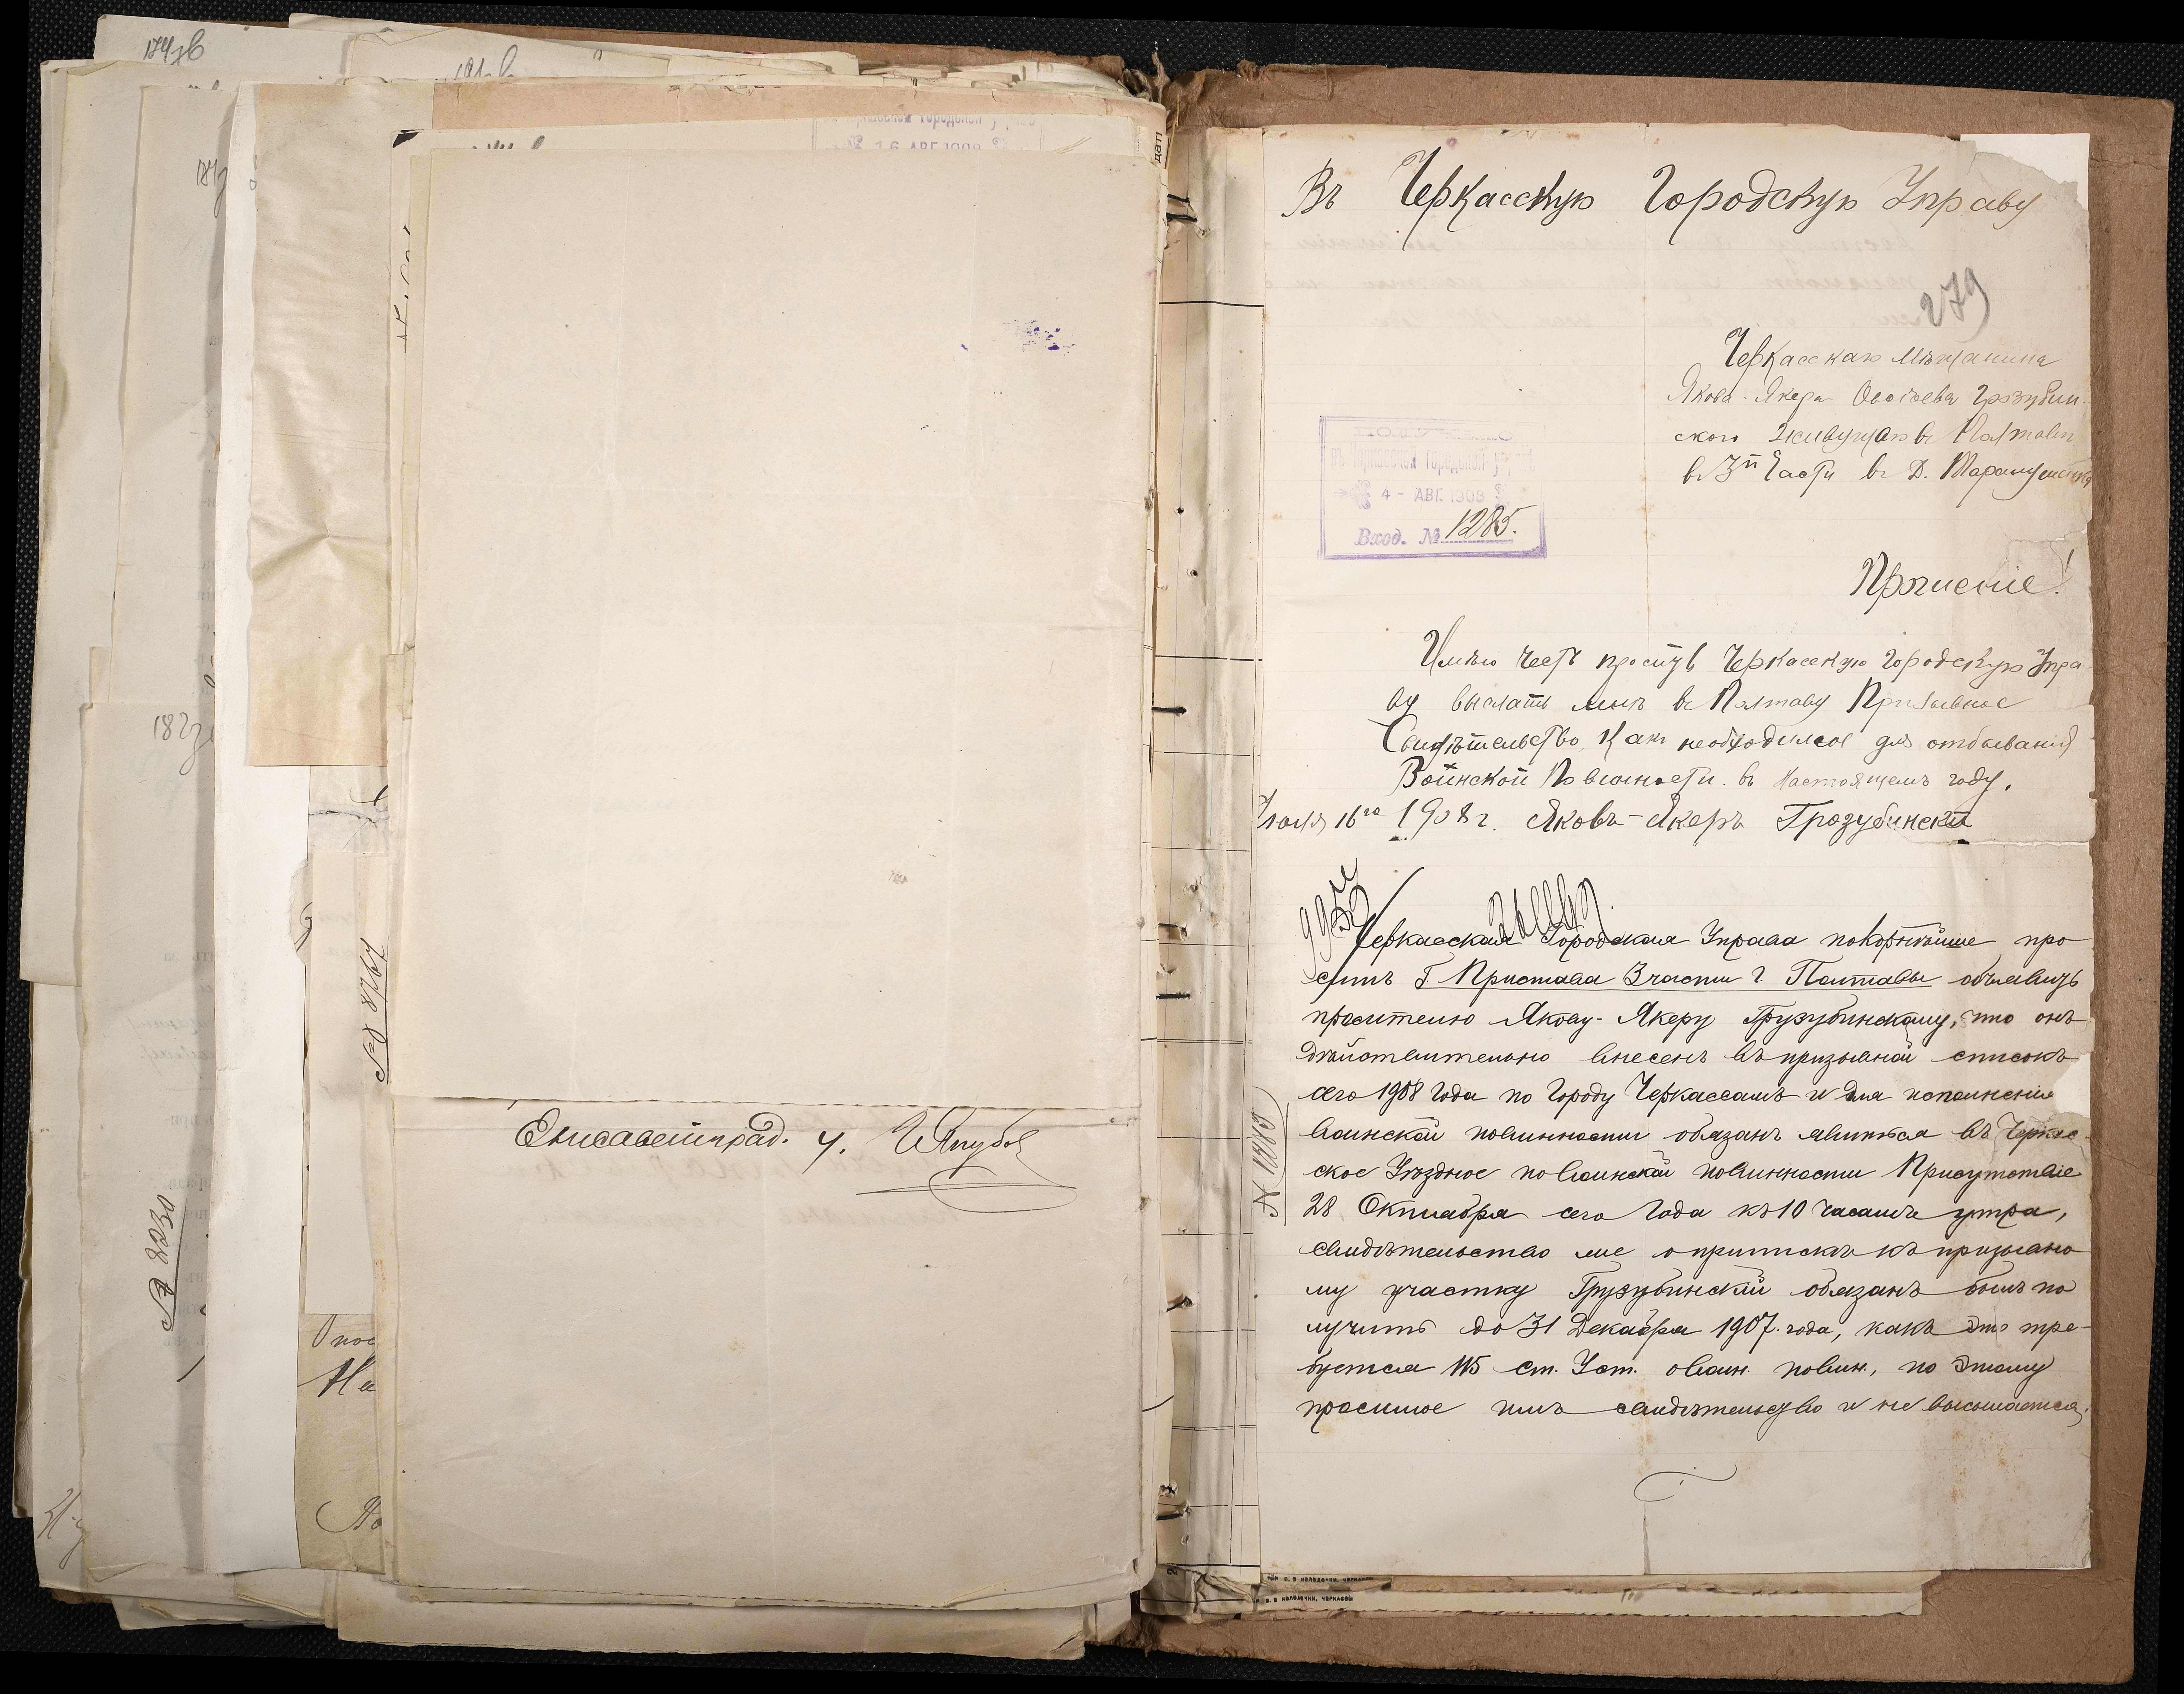 174зв
182з
№ 8230
№ 8767
Опос
На
16 АВГ. 1908
Елисаветград. у.
Въ Черкасскую Городскую Управу
279
Черкасскаго Мѣщанина
Якова-Якера Грозубин-
ского Живущаго въ Полтавѣ
в 3й Части въ Д.
Городской
4 - АВГ. 1908
Вход. № 1285.
Прошеніе!
Имѣю честь просить Черкасскую Городскую Упра-
ву выслать мнѣ въ Полтаву Призывное
Свидѣтельство, какъ необходимое для отбыванія
Воинской Повинности въ настоящемъ году.
Іюля 16го 1908 г. Яковъ-Якеръ Грозубински
Черкасская Городская Управа покорнѣйше про
ситъ Г. Пристава 3 части г. Полтавы объявить
просителю Якову-Якеру Грузубинскому, что онъ
дѣйствительно внесенъ въ призывной списокъ
сего 1908 года по городу Черкассамъ и для исполненія
воинской повинности обязанъ явиться въ Черкас-
ское Уѣздное по воинской повинности Присутствіе
28 Октября сего года къ 10 часамъ утра,
свидѣтельство же о припискѣ къ призывно
му участку Грузубинскій обязанъ былъ по
лучить до 31 Декабря 1907 года, какъ это тре-
буется 115 ст. Уст. о воин. повин., по этому
просимое имъ свидѣтельство и не высылается.
№ 11889